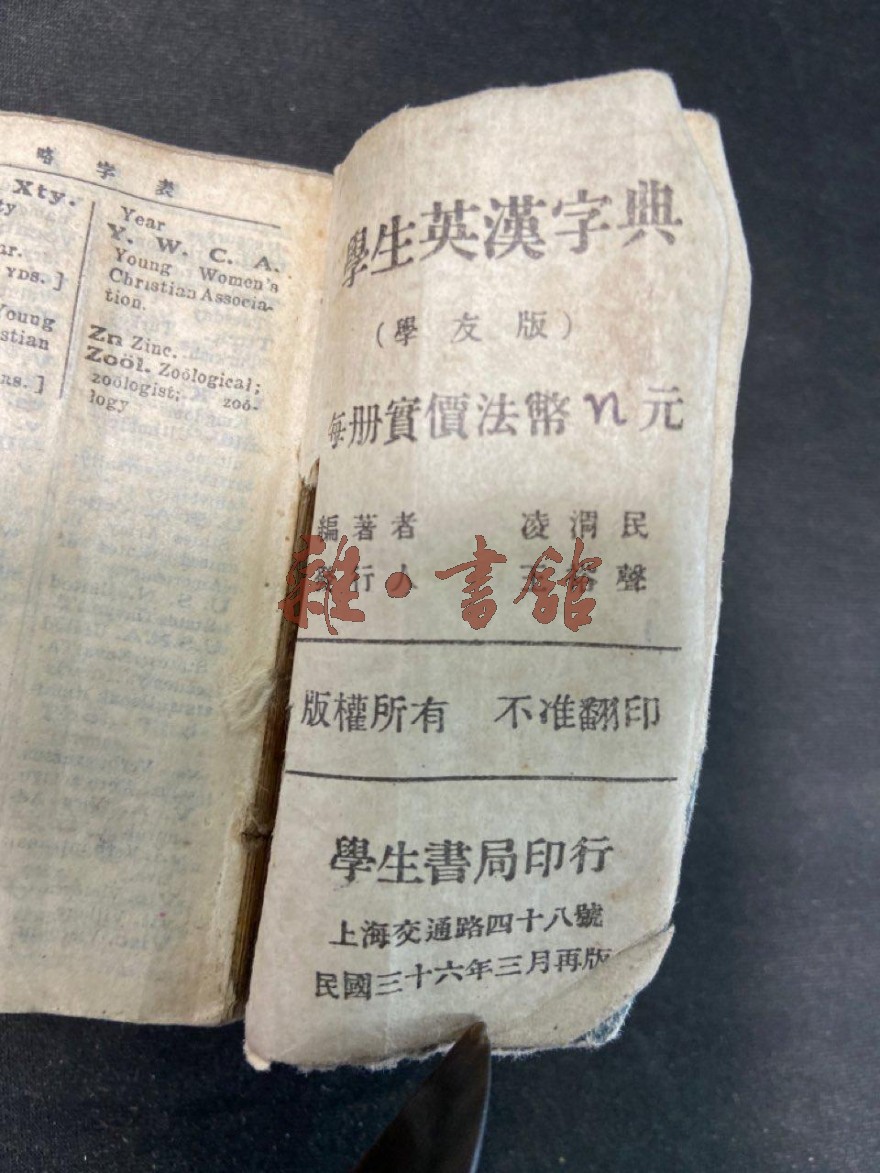 略字表
Xty.
Year
Y. W. C. A.
Young Women's
Christian Associa-
tion.
YDS. ]
Young
Zn Zinc.
Zoöl. Zoölogical;
zoölogist; zoö-
logy
學生英漢字典
(學友版)
每册實價法幣 元
編著者 凌潤民
行人 聲
版權所有 不准翻印
學生書局印行
上海交通路四十八號
民國三十六年三月再版
雜·書館